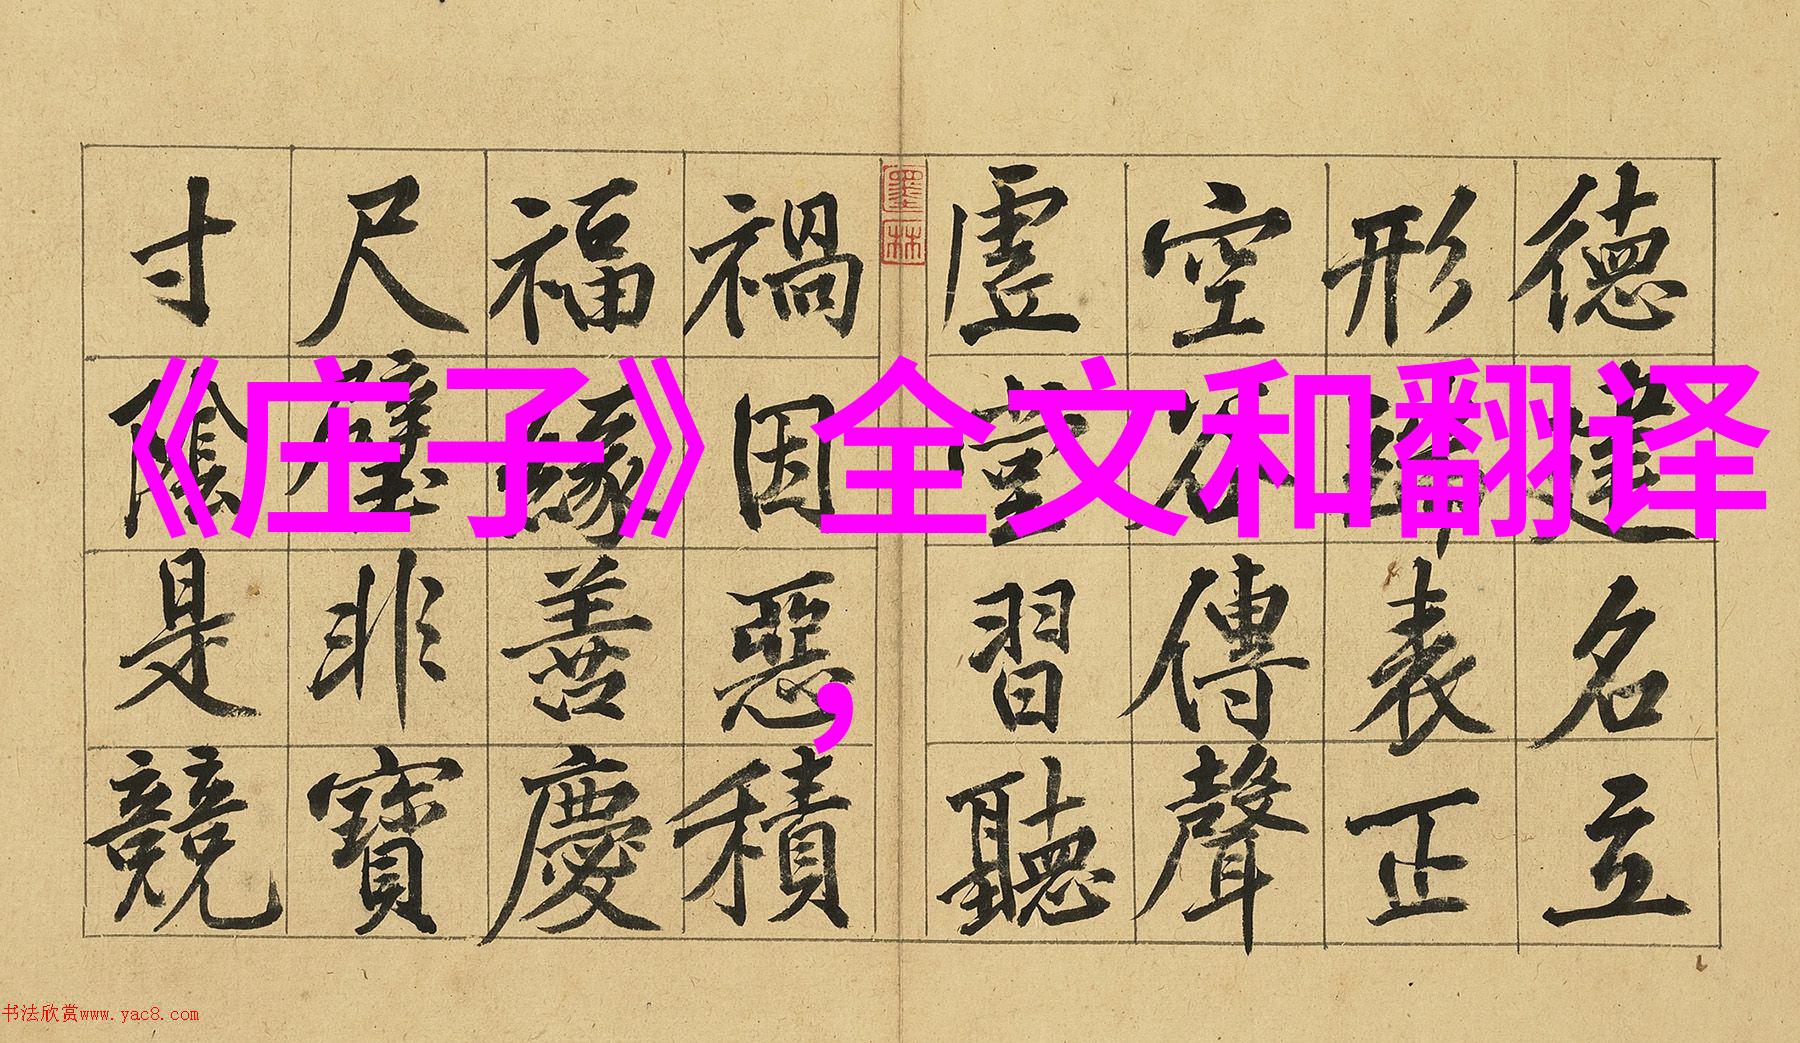 《庄子》全文和翻译
，
德建名立
形端表正
空谷傳聲
虛堂習聽
墨林
禍因惡積
福緣善慶
尺璧非寶
寸陰是競
书法欣赏www.yac8.com